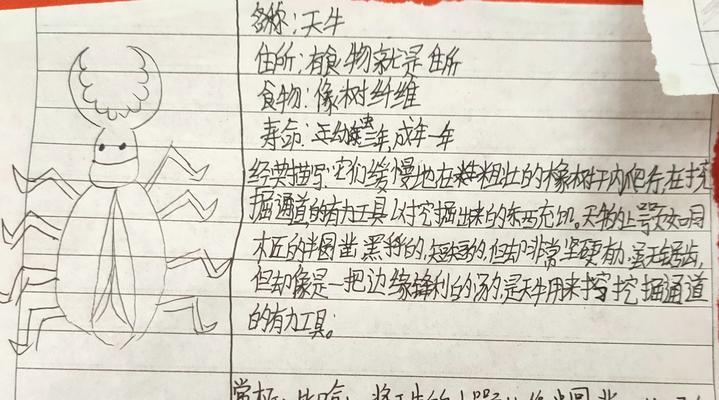 名称：天牛
住所：有食物就是住所
食物：像树纤维
寿命：年幼虫三年，成年一年
经典描写：它们缓慢地在粗壮的橡树干内爬行，在挖
掘通道的有力工具以挖掘出来的东西充饥。天牛的上颚如同
木匠的半圆凿，黑乎的，短短的，但却非常坚硬有力，虽无锯齿，
但却像是一把边缘锋利的汤，是天牛用来挖掘通道
的有力工具。
赏析：比喻，将天牛的上颚比作半圆凿